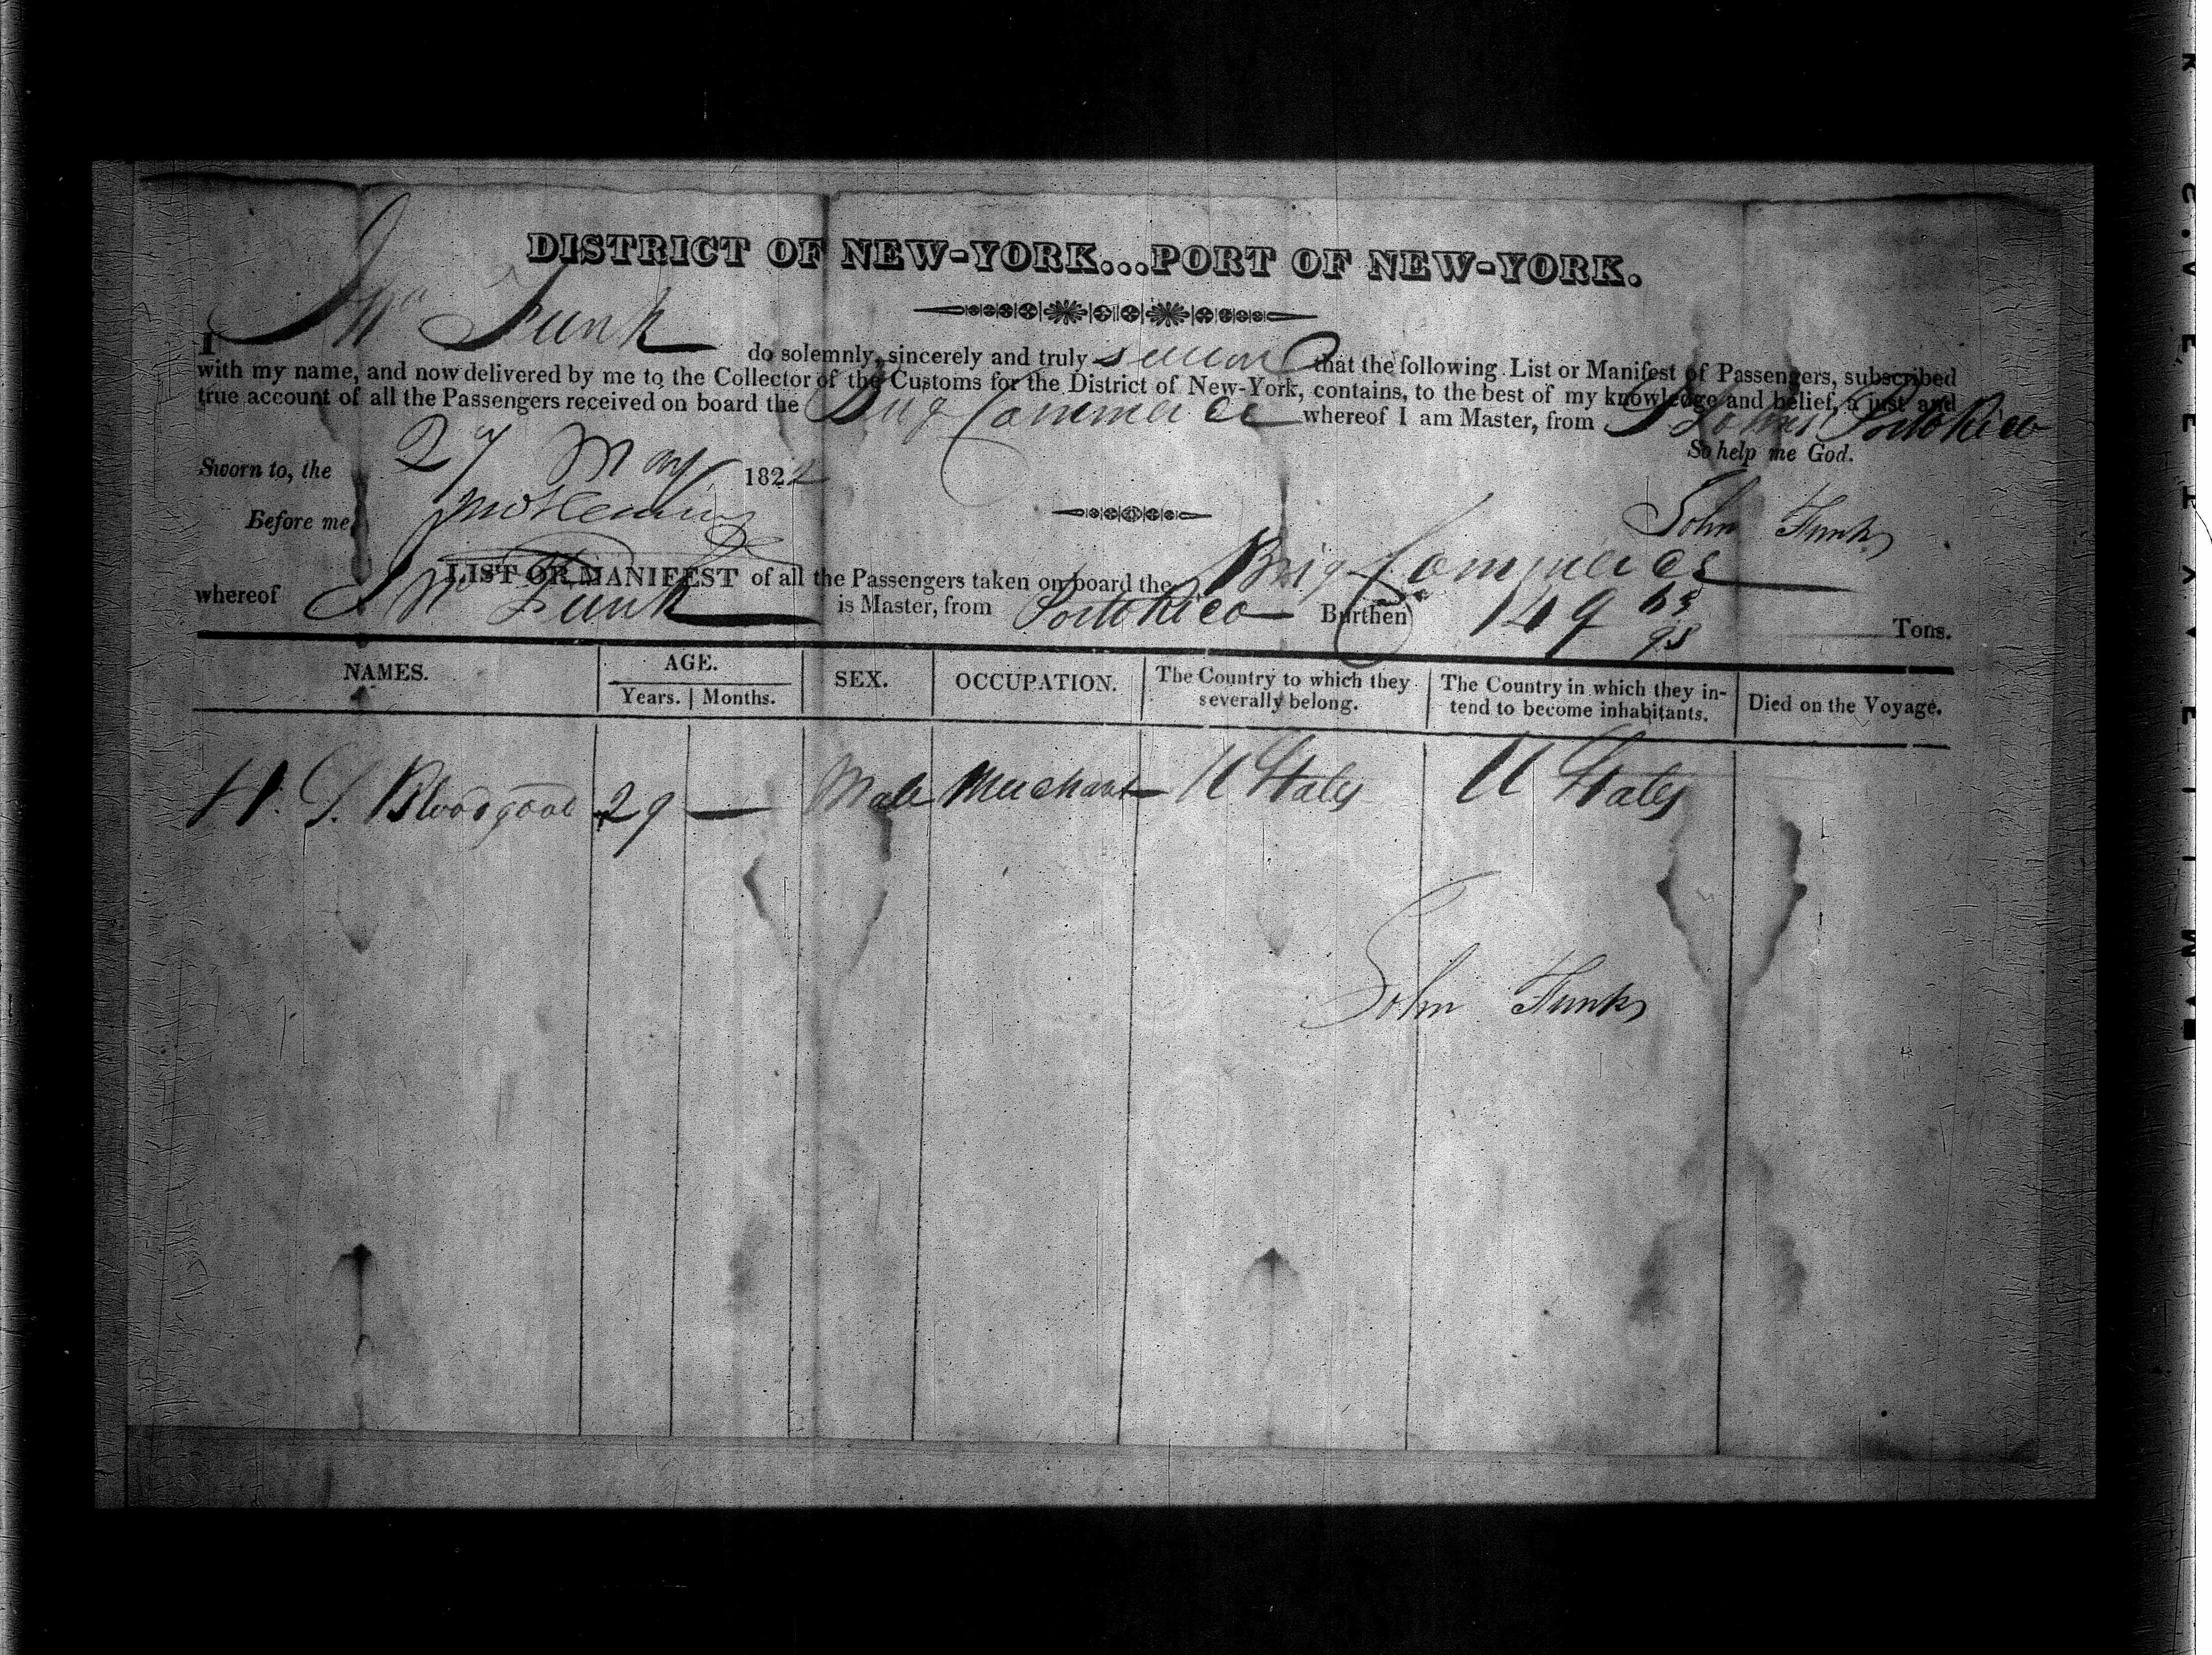 DISTRICT OF NEW-YORK...PORT OF NEW-YORK.
I Jno Funk do solemnly, sincerely and truly swear that the following List or Manifest of Passengers, subscribed
with my name, and now delivered by me to the Collector of the Customs for the District of New-York, contains, to the best of my knowledge and belief, a just and
true account of all the Passengers received on board the Brig Commerce whereof I am Master, from St Johns Porto Rico
So help me God.
Sworn to, the 27 May 1822
Before me,
John Funk
LIST OR MANIFEST of all the Passengers taken on board the Brig Commerce
whereof Jno Funk is Master, from Porto Rico Burthen 149 63/95 Tons.
NAMES. AGE. Years. Months. SEX. OCCUPATION. The Country to which they severally belong. The Country in which they intend to become inhabitants. Died on the Voyage.
H. G. Bloodgood 29 — Male Merchant U States U States
John Funk